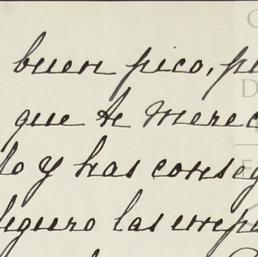 buen pico, pu
que te merec
lo y has conseg
leguro las enepu